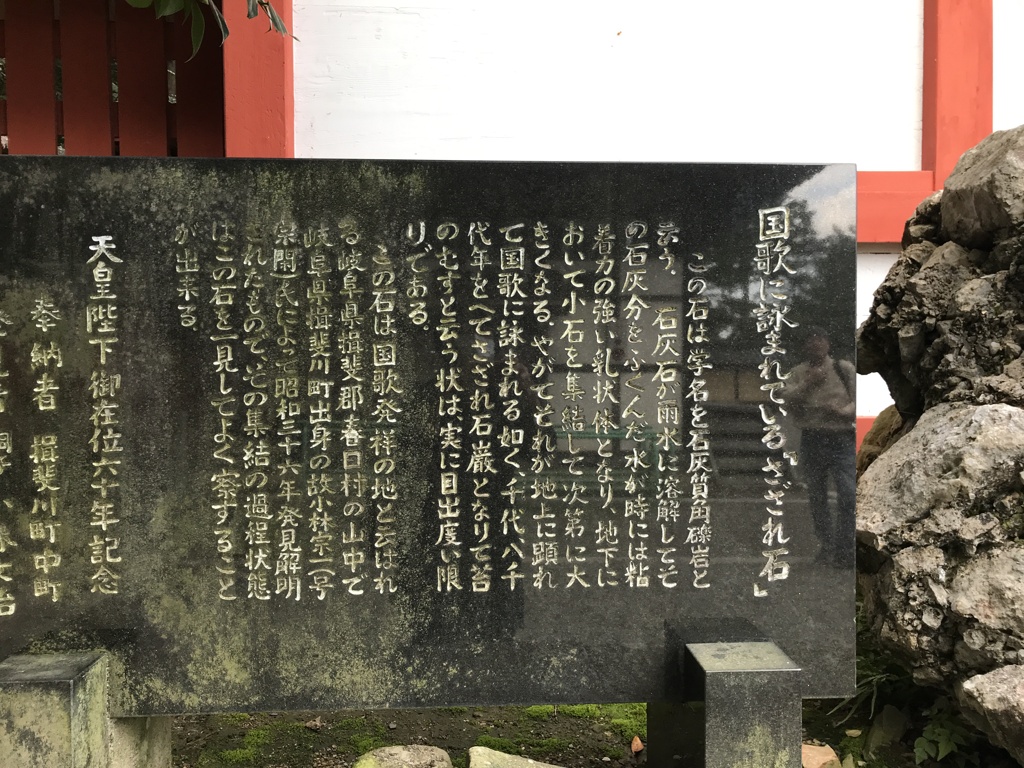 国歌に詠まれている「さざれ石」
この石は学名を石灰質角礫岩と
云う。石灰石が雨水に溶解してそ
の石灰分をふくんだ水が時には粘
着力の強い乳状体となり、地下に
おいて小石を集結して次第に大
きくなる。やがてそれが地上に顕れ
て国歌に詠まれる如く、千代、八千
代年をへてさざれ石巌となりて苔
のむすと云う状は実に目出度い限
りである。
この石は国歌発祥の地と云はれ
る岐阜県揖斐郡春日村の山中で
岐阜県揖斐川町出身の故小林宗一(号
宗閑)氏によって昭和三十六年発見解明
されたもので、その集結の過程状態
はこの石を一見してよく察すること
が出来る。
天皇陛下御在位六十年記念
奉納者 揖斐川町中町